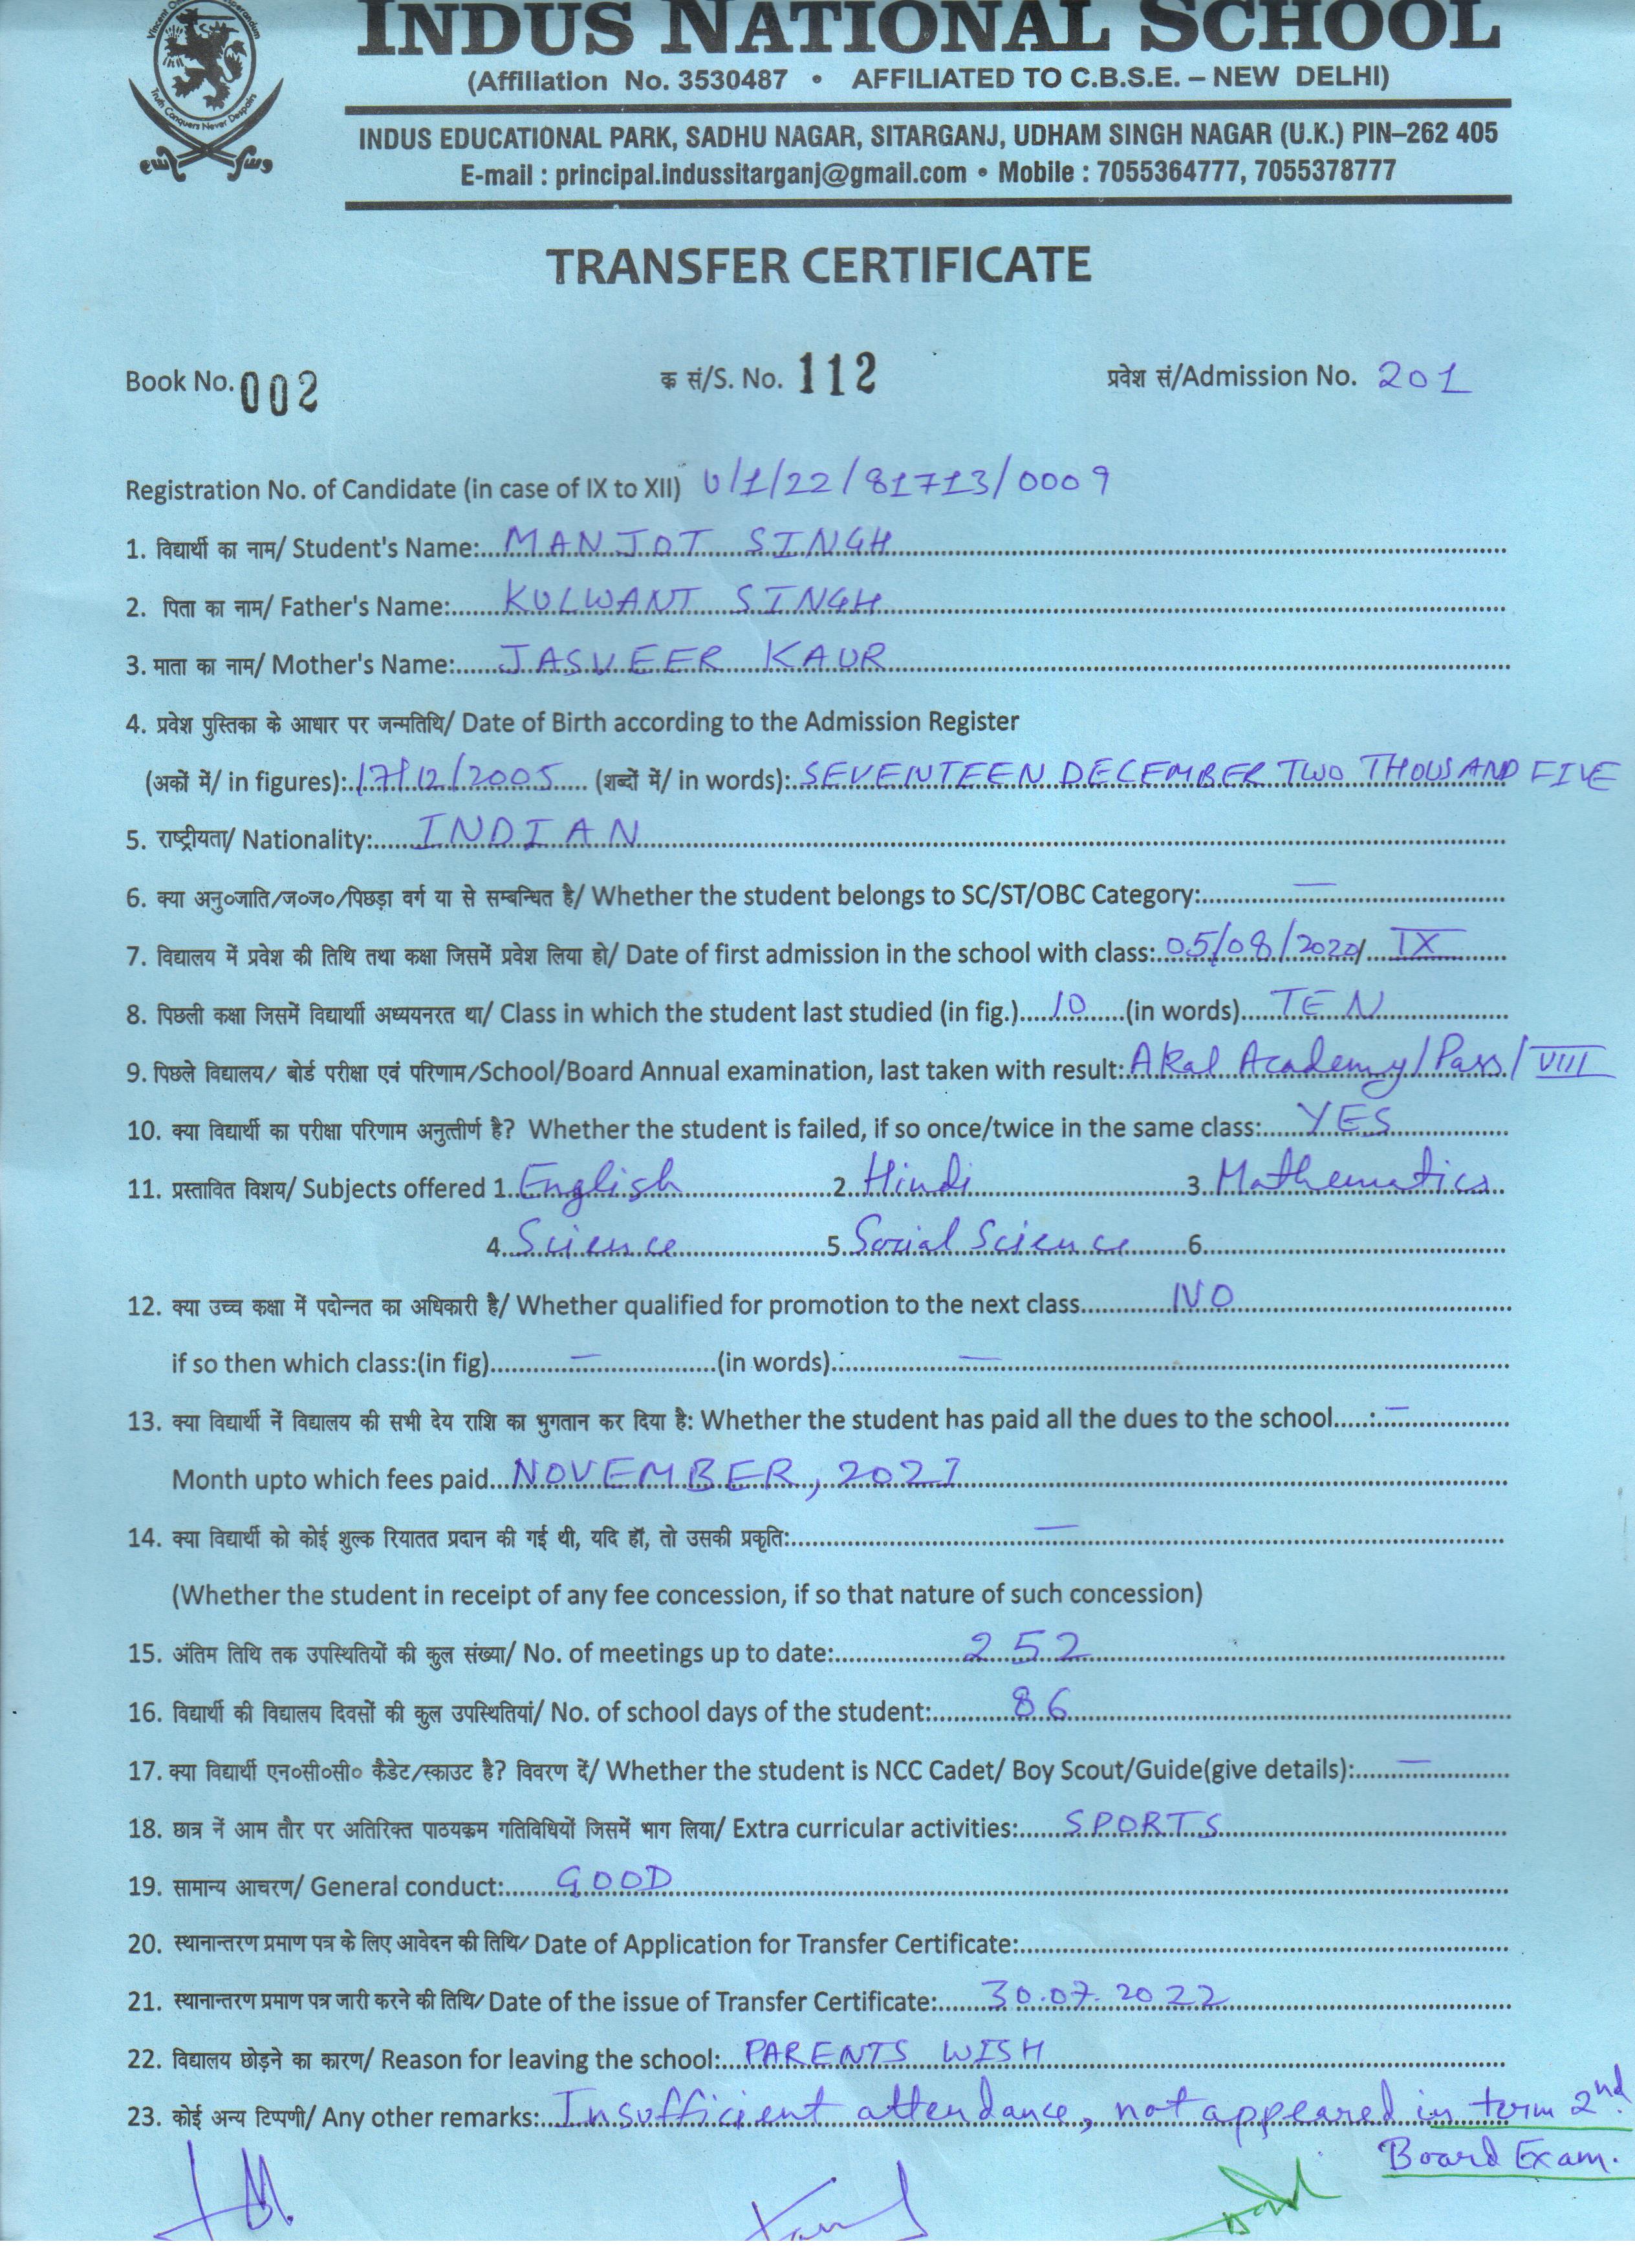 INDUS NATIONAL SCHOOL
(Affiliation No. 3530487 • AFFILIATED TO C.B.S.E. – NEW DELHI)
Truth Conquers Never Despairs
INDUS EDUCATIONAL PARK, SADHU NAGAR, SITARGANJ, UDHAM SINGH NAGAR (U.K.) PIN–262 405
E-mail : principal.indussitarganj@gmail.com • Mobile : 7055364777, 7055378777
TRANSFER CERTIFICATE
Book No. 002 क सं/S. No. 112 प्रवेश सं/Admission No. 201
Registration No. of Candidate (in case of IX to XII) U/1/22/81713/0009
1. विद्यार्थी का नाम/ Student's Name: MANJOT SINGH
2. पिता का नाम/ Father's Name: KULWANT SINGH
3. माता का नाम/ Mother's Name: JASVEER KAUR
4. प्रवेश पुस्तिका के आधार पर जन्मतिथि/ Date of Birth according to the Admission Register
(अकों में/ in figures): 17/12/2005 (शब्दों में/ in words): SEVENTEEN DECEMBER TWO THOUSAND FIVE
5. राष्ट्रीयता/ Nationality: INDIAN
6. क्या अनु०जाति/ज०ज०/पिछड़ा वर्ग या से सम्बन्धित है/ Whether the student belongs to SC/ST/OBC Category: —
7. विद्यालय में प्रवेश की तिथि तथा कक्षा जिसमें प्रवेश लिया हो/ Date of first admission in the school with class: 05/08/2020/ IX
8. पिछली कक्षा जिसमें विद्यार्थी अध्ययनरत था/ Class in which the student last studied (in fig.) 10 (in words) TEN
9. पिछले विद्यालय/ बोर्ड परीक्षा एवं परिणाम/School/Board Annual examination, last taken with result: Akal Academy/Pass/ VIII
10. क्या विद्यार्थी का परीक्षा परिणाम अनुत्तीर्ण है? Whether the student is failed, if so once/twice in the same class: YES
11. प्रस्तावित विशय/ Subjects offered 1. English 2. Hindi 3. Mathematics
4. Science 5. Social Science 6.
12. क्या उच्च कक्षा में पदोन्नत का अधिकारी है/ Whether qualified for promotion to the next class NO
if so then which class:(in fig) — (in words) —
13. क्या विद्यार्थी नें विद्यालय की सभी देय राशि का भुगतान कर दिया है: Whether the student has paid all the dues to the school : —
Month upto which fees paid NOVEMBER, 2021
14. क्या विद्यार्थी को कोई शुल्क रियातत प्रदान की गई थी, यदि हॉ, तो उसकी प्रकृति: —
(Whether the student in receipt of any fee concession, if so that nature of such concession)
15. अंतिम तिथि तक उपस्थितियों की कुल संख्या/ No. of meetings up to date: 252
16. विद्यार्थी की विद्यालय दिवसों की कुल उपस्थितियां/ No. of school days of the student: 86
17. क्या विद्यार्थी एन०सी०सी० कैडेट/स्काउट है? विवरण दें/ Whether the student is NCC Cadet/ Boy Scout/Guide(give details): —
18. छात्र नें आम तौर पर अतिरिक्त पाठयक्रम गतिविधियों जिसमें भाग लिया/ Extra curricular activities: SPORTS
19. सामान्य आचरण/ General conduct: GOOD
20. स्थानान्तरण प्रमाण पत्र के लिए आवेदन की तिथि/ Date of Application for Transfer Certificate:
21. स्थानान्तरण प्रमाण पत्र जारी करने की तिथि/ Date of the issue of Transfer Certificate: 30.07.2022
22. विद्यालय छोड़ने का कारण/ Reason for leaving the school: PARENTS WISH
23. कोई अन्य टिप्पणी/ Any other remarks: Insufficient attendance, not appeared in term 2nd
Board Exam.